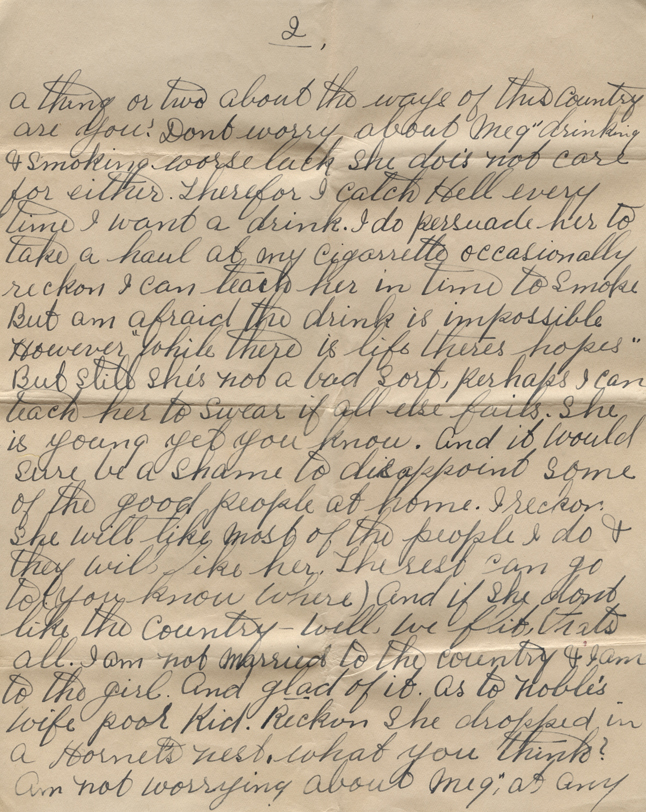 2,
a thing or two about the ways of this Country
are you? Dont worry about Meg "drinking
& smoking worse luck she dois not care
for either. Therefor I catch Hell every
time I want a drink. I do persuade her to
take a haul at my cigarrette occasionally
reckon I can teach her in time to smoke
But am afraid the drink is impossible
However "while there is life theres hopes"
But still she's not a bad sort, perhaps I can
teach her to swear if all else fails. She
is young yet you know. And it would
sure be a shame to disappoint some
of the good people at home. I reckon
she will like most of the people I do &
they will like her. The rest can go
to (you know where) And if she dont
like the Country - well, we flit, thats
all. I am not married to the country & I am
to the girl. And glad of it. As to Noble's
wife poor Kid. Reckon she dropped in
a Hornets nest. what you think?
Am not worrying about Meg", at any